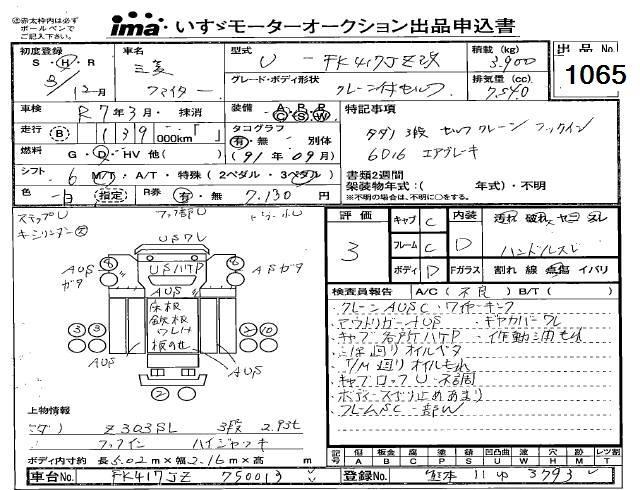 ㊟赤太枠内は必ず
ボールペンで
ご記入下さい。
ima いすゞモーターオークション出品申込書
出品No. 1065
初度登録 S・Ⓗ・R 3/12月
車名 三菱 ファイター
型式 U - FK417JZ改
積載(kg) 3,900
グレード・ボディ形状 クレーン付セルフ
排気量(cc) 7,540
車検 R7年3月・抹消
装備 A P R C S W
特記事項
走行 Ⓑ 139 000km「 」
タコグラフ 有・無 別体
タダノ3段 セルフクレーン フックイン
燃料 G・D・HV 他( )
(91年09月)
6D16 エアブレーキ
シフト 6 M/T・A/T・特殊(2ペダル・3ペダル)
書類2週間
架装物年式:( 年式)・不明
※不明の場合は、不明に〇をする。
色 白 指定 R券 有・無 7,130円
ステップU
キーシリンダー欠
フック部U
評価 3
キャブ C
フレーム C
ボディ D
内装 D
Fガラス 割れ 線 点傷 イバリ
ハンドルスレ
USワレ
USハケP
AUS
ガタ
AUS
床板
鉄板
ワレH
板の他
AUS
検査員報告 A/C(不良) B/T( )
クレーンAUSC・ワイヤーキンク
アウトリガーAUS・ギヤカバーワレ
キャブ各所ハケP・作動油モレ
三つ又回りオイルベタ
T/M廻りオイルモレ
キャブロックU・不調
ボデースベリ止めあまり
フレームSC一部W
上物情報
タダノ Z303SL 3段 2.93t
フックイン ハイジャッキ
ボディ内寸約 長5.02m×幅2.16m×高 m
記号 傷A 板金B 腐C 塗P サビS 凹凸U 波W 穴H 跡M レッカ割TZ
車台No. FK417JZ 750013
登録No. 熊本 11 ゆ 3793